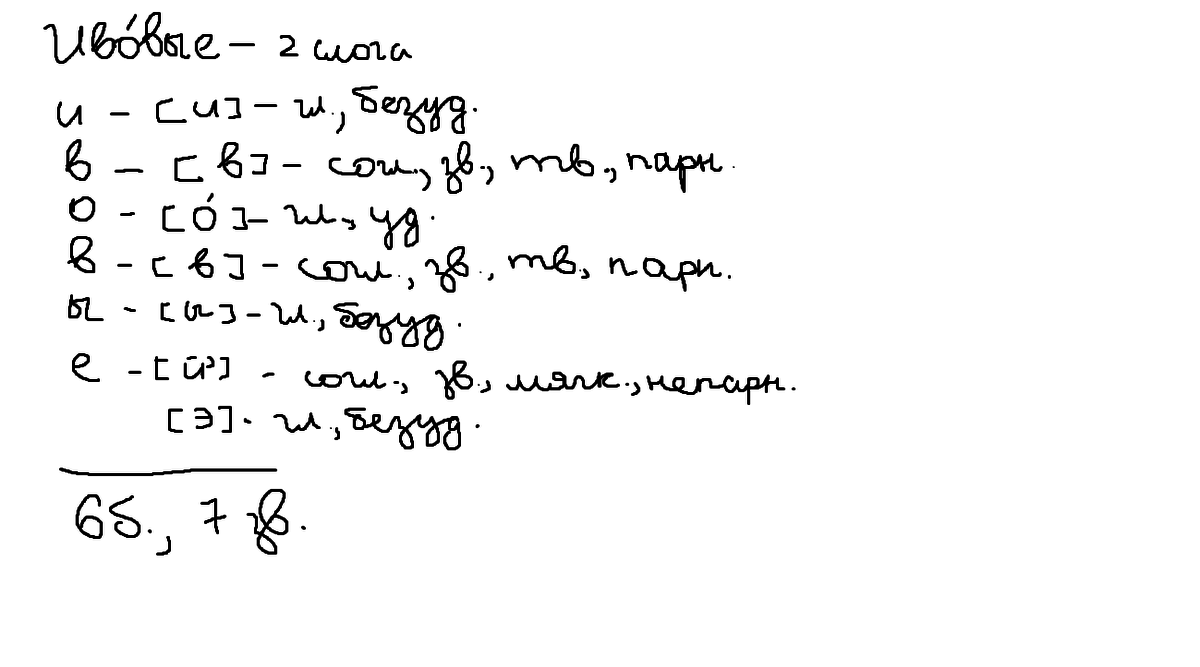 Иво́вые – 2 слога
и – [и] – гл., безуд.
в – [в] – согл., зв., тв., парн.
о – [о́] – гл., уд.
в – [в] – согл., зв., тв., парн.
ы – [ы] – гл., безуд.
е – [й'] – согл., зв., мягк., непарн.
[э] - гл., безуд.
6б., 7 зв.